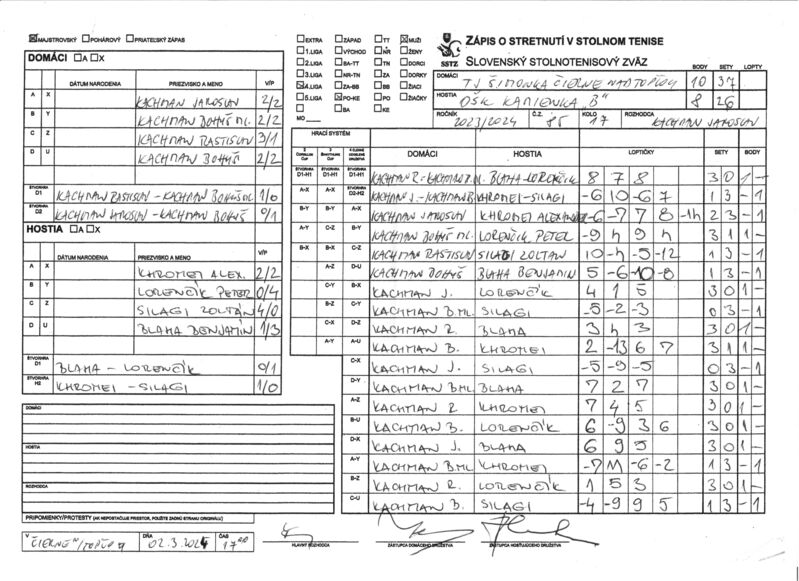 ☒ MAJSTROVSKÝ ☐ POHÁROVÝ ☐ PRIATEĽSKÝ ZÁPAS
☐ EXTRA ☐ ZÁPAD ☐ TT ☒ MUŽI
☐ 1.LIGA ☐ VÝCHOD ☐ NR ☐ ŽENY
☐ 2.LIGA ☐ BA-TT ☐ TN ☐ DORCI
☐ 3.LIGA ☐ NR-TN ☐ ZA ☐ DORKY
☒ 4.LIGA ☐ ZA-BB ☐ BB ☐ ŽIACI
☐ 5.LIGA ☒ PO-KE ☐ PO ☐ ŽIAČKY
☐ ☐ BA ☐ KE
MO
SSTZ
ZÁPIS O STRETNUTÍ V STOLNOM TENISE
SLOVENSKÝ STOLNOTENISOVÝ ZVÄZ
BODY SETY LOPTY
DOMÁCI TJ ŠIMONKA ČIERNE NAD TOPĽOU 10 37
HOSTIA OŠK KAMIENKA "B" 8 26
ROČNÍK 2023/2024 Č.Z. KOLO 17 ROZHODCA KACHMAN JAROSLAV
DOMÁCI ☐ A ☐ X
DÁTUM NARODENIA PRIEZVISKO A MENO V/P
A X KACHMAN JAROSLAV 2/2
B Y KACHMAN BOHUŠ ML. 2/2
C Z KACHMAN RASTISLAV 3/1
D U KACHMAN BOHUŠ 2/2
ŠTVORHRA D1 KACHMAN RASTISLAV - KACHMAN BOHUŠ ML 1/0
ŠTVORHRA D2 KACHMAN JAROSLAV - KACHMAN BOHUŠ 0/1
HOSTIA ☐ A ☐ X
DÁTUM NARODENIA PRIEZVISKO A MENO V/P
A X KHROMEI ALEX. 2/2
B Y LORENČÍK PETER 0/4
C Z SILAGI ZOLTÁN 4/0
D U BLAHA BENJAMÍN 1/3
ŠTVORHRA BLAHA - LORENČÍK 0/1
ŠTVORHRA H2 KHROMEI - SILAGI 1/0
DOMÁCI
HOSTIA
ROZHODCA
PRIPOMIENKY/PROTESTY (AK NEPOSTAČUJE PRIESTOR, POUŽITE ZADNÚ STRANU ORIGINÁLU)
HRACÍ SYSTÉM
DOMÁCI HOSTIA LOPTIČKY SETY BODY
KACHMAN R. - KACHMAN B. ML. BLAHA - LORENČÍK 8 7 8 3 0 1 -
KACHMAN J. - KACHMAN B. KHROMEI - SILAGI -6 10 -6 7 1 3 - 1
B-Y A-Y A-X KACHMAN JAROSLAV KHROMEI ALEXANDER -6 -7 7 8 -14 2 3 - 1
A-Y C-Z B-Y KACHMAN BOHUŠ ML. LORENČÍK PETER -9 4 9 4 3 1 1 -
B-X B-X C-Z KACHMAN RASTISLAV SILAGI ZOLTÁN 10 -4 -5 -12 1 3 - 1
A-Z D-U KACHMAN BOHUŠ BLAHA BENJAMIN 5 -6 -10 -8 1 3 - 1
C-Y B-X KACHMAN J. LORENČÍK 4 1 5 3 0 1 -
B-Z C-Y KACHMAN B. ML. SILAGI -5 -2 -3 0 3 - 1
C-X D-Z KACHMAN R. BLAHA 3 4 3 3 0 1 -
A-Y A-U KACHMAN B. KHROMEI 2 -13 6 7 3 1 1 -
C-X KACHMAN J. SILAGI -5 -9 -5 0 3 - 1
D-Y KACHMAN B. ML. BLAHA 7 2 7 3 0 1 -
A-Z KACHMAN R. KHROMEI 7 4 5 3 0 1 -
B-U KACHMAN B. LORENČÍK 6 -9 3 6 3 0 1 -
D-X KACHMAN J. BLAHA 6 9 5 3 0 1 -
A-Y KACHMAN B. ML. KHROMEI -7 11 -6 -2 1 3 - 1
B-Z KACHMAN R. LORENČÍK 1 5 3 3 0 1 -
C-U KACHMAN B. SILAGI -4 -9 9 5 1 3 - 1
V ČIERNE N/TOPĽOU DŇA 02.3.2024 ČAS 17 00
HLAVNÝ ROZHODCA ZÁSTUPCA DOMÁCEHO DRUŽSTVA ZÁSTUPCA HOSŤUJÚCEHO DRUŽSTVA